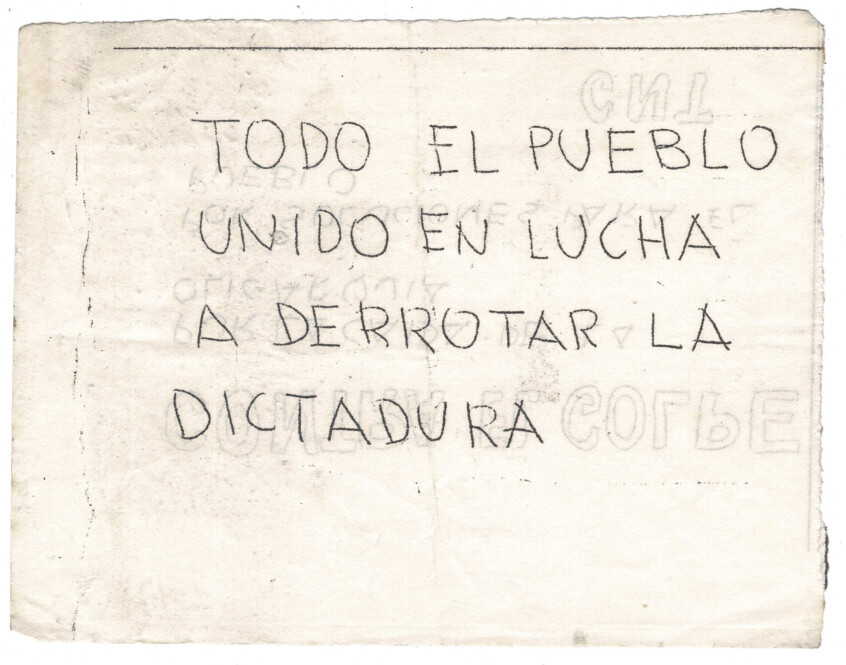 TODO EL PUEBLO
UNIDO EN LUCHA
A DERROTAR LA
DICTADURA